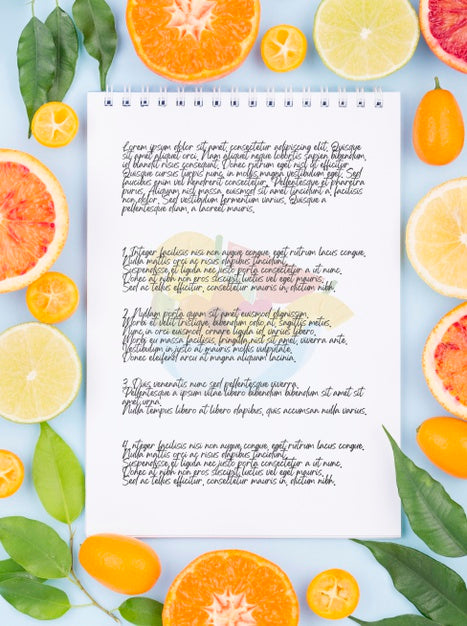 Lorem ipsum dolor sit amet, consectetur adipiscing elit. Quisque
sit amet aliquet orci. Nam aliquet neque lobortis sapien bibendum,
id blandit risus consequat. Donec rutrum est nisl et efficitur.
Quisque cursus turpis nunc, in mollis magna vestibulum eget. Sed
faucibus enim vel hendrerit consectetur. Pellentesque et pharetra
purus. Aliquam nisl massa, euismod sit amet tincidunt a, facilisis
non dolor. Sed vestibulum fermentum varius. Quisque a
pellentesque diam, a laoreet mauris.
1. Integer facilisis nisi non augue congue, eget rutrum lacus congue.
Nulla mattis orci ac risus dapibus tincidunt.
Suspendisse et ligula nec justo porta consectetur a ut nunc.
Donec at nibh non eros suscipit luctus vel eget mauris.
Sed ac tellus efficitur, consectetur mauris in, dictum nibh.
2. Nullam porta quam sit amet euismod dignissim.
Morbi et velit tristique, bibendum odio at, sagittis metus.
Nunc in orci euismod, ornare ligula id, varius libero.
Morbi eu massa facilisis, fringilla nisl sit amet, viverra ante.
Vestibulum in justo at mauris mollis vulputate.
Donec eleifend arcu at magna aliquam lacinia.
3. Duis venenatis nunc sed pellentesque viverra.
Pellentesque a ipsum vitae libero bibendum bibendum sit amet sit
amet urna.
Nulla tempus libero at libero dapibus, quis accumsan nulla varius.
4. integer facilisis nisi non augue, congue, eget rutrum lacus congue.
Nulla mattis orci ac risus dapibus tincidunt.
Suspendisse et ligula nec justo porta consectetur a ut nunc.
Donec at nibh non eros suscipit luctus vel eget mauris.
Sed ac tellus efficitur, consectetur mauris in, dictum nibh.